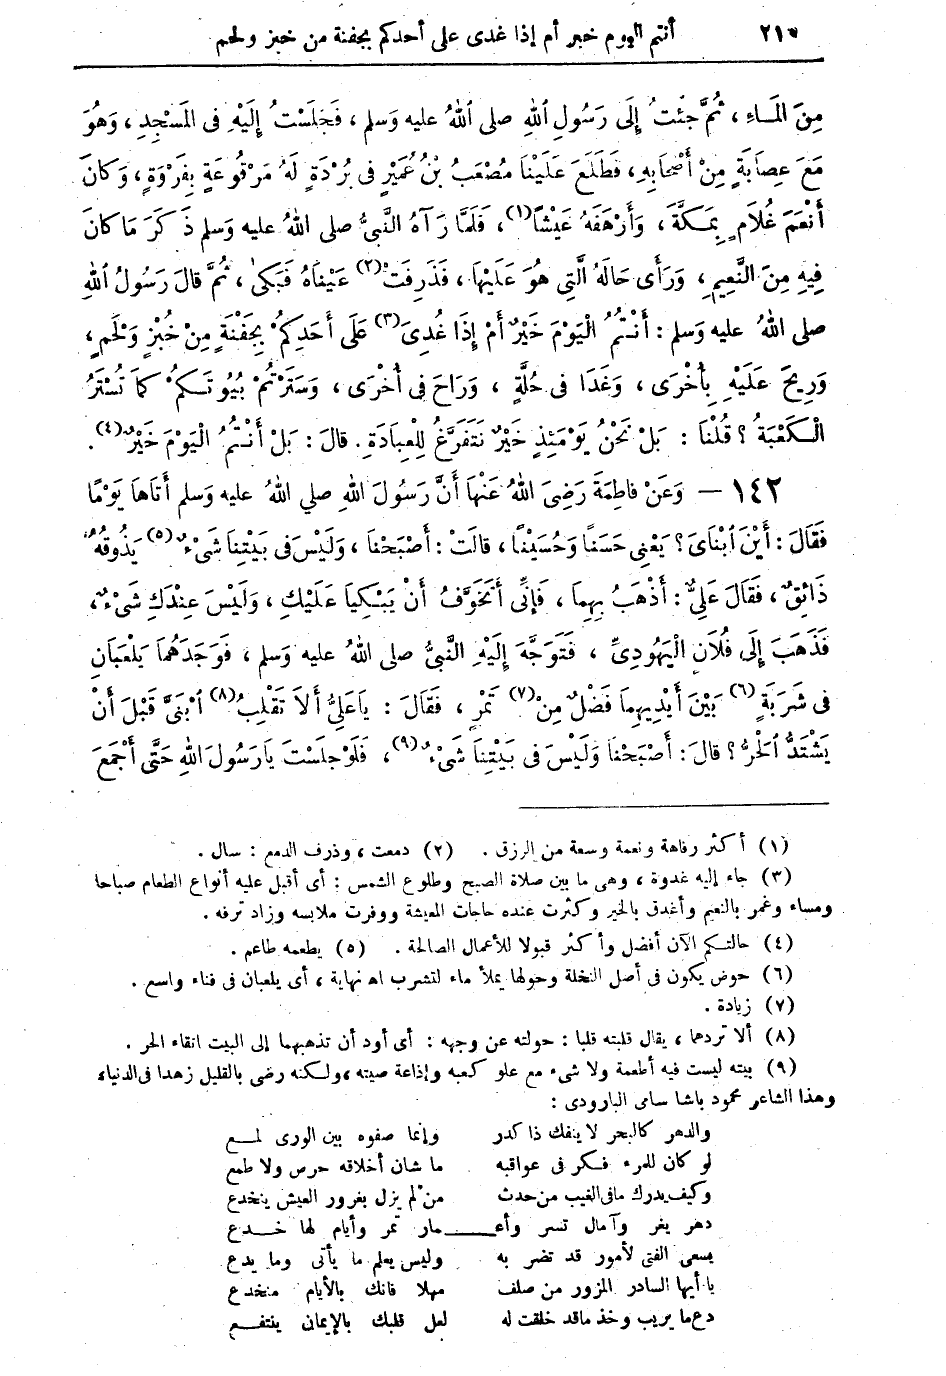 أنتم اليوم خير أم إذا غدى على أحدكم بجفنة من خبز ولحم
٢١٠
مِنَ الْمَاءِ ، ثُمَّ جِئْتُ إِلَى رَسُولِ اللهِ صلى اللهُ عليه وَسلم ، فَجَلَسْتُ إِلَيْهِ فِى الْمَسْجِدِ ، وَهُوَ
مَعَ عِصَابَةٍ مِنْ أَصْحَابِهِ ، فَطَلَعَ عَلَيْنَا مُصْعَبُ بْنُ عُمَيْرٍ فِى بُرْدَةٍ لَهُ مَرْقُوعَةٍ بِفَرْوَةٍ ، وَكانَ
أَنْعَمَ غُلَامٍ بِمَكَّةَ ، وَأَرْهَفَهُ عَيْشًا (١) ، فَلَمَّا رَآهُ النَّبِىُّ صلى اللهُ عليه وَسلم ذَكَرَ مَا كانَ
فِيهِ مِنَ النَّعِيمِ ، وَرَأَى حَالَهُ الَّتِى هُوَ عَلَيْهَا ، فَذَرِفَتْ (٢) عَيْنَاهُ فَبَكىٰ ، ثُمَّ قالَ رَسُولُ اللهِ
صلى اللهُ عليه وَسلم : أَنْتُمُ الْيَوْمَ خَيْرٌ أَمْ إِذَا غُدِىَ (٣) عَلَى أَحَدِكُمْ بِجَفْنَةٍ مِنْ خُبْزٍ وَلَحْمٍ ،
وَرِيحَ عَلَيْهِ بِأُخْرَى ، وَغَدَا فِى حُلَّةٍ ، وَرَاحَ فِى أُخْرَى ، وَسَتَرْتُمْ بُيُوتَكُمْ كَمَا تُسْتَرُ
الْكَعْبَةُ ؟ قُلْنَا : بَلْ نَحْنُ يَوْمَئِذٍ خَيْرٌ نَتَفَرَّغُ لِلْعِبَادَةِ . قالَ : بَلْ أَنْتُمُ الْيَوْمَ خَيْرٌ (٤) .
١٤٢ — وَعَنْ فاطِمَةَ رَضِىَ اللهُ عَنْهَا أَنَّ رَسُولَ اللهِ صلى اللهُ عليه وَسلم أَتَاهَا يَوْمًا
فَقَالَ : أَيْنَ ابْنَاىَ ؟ يَعْنِى حَسَنًا وَحُسَيْنًا ، قالَتْ : أَصْبَحْنَا ، وَلَيْسَ فِى بَيْتِنَا شَىْءٌ (٥) يَذُوقُهُ
ذَائِقٌ ، فَقَالَ عَلِىٌّ : أَذْهَبُ بِهِمَا ، فَإِنِّى أَتَخَوَّفُ أَنْ يَبْكِيَا عَلَيْكِ ، وَلَيْسَ عِنْدَكِ شَىْءٌ ،
فَذَهَبَ إِلَى فُلَانٍ الْيَهُودِىِّ ، فَتَوَجَّهَ إِلَيْهِ النَّبِىُّ صلى اللهُ عليه وسلم ، فَوَجَدَهُمَا يَلْعَبَانِ
فِى شَرَبَةٍ (٦) بَيْنَ أَيْدِيهِمَا فَضْلٌ مِنْ (٧) تَمْرٍ ، فَقَالَ : يَاعَلِىُّ أَلاَ تَقْلِبُ (٨) ابْنَىَّ قَبْلَ أَنْ
يَشْتَدَّ الْحَرُّ ؟ قالَ : أَصْبَحْنَا وَلَيْسَ فِى بَيْتِنَا شَىْءٌ (٩) ، فَلَوْ جَلَسْتَ يَارَسُولَ اللهِ حَتَّى أَجْمَعَ
(١) أكثر رفاهة ونعمة وسعة من الرزق . (٢) دمعت ، وذرف الدمع : سال .
(٣) جاء إليه غدوة ، وهى ما بين صلاة الصبح وطلوع الشمس : أى أقبل عليه أنواع الطعام صباحا
ومساء وغمر بالنعيم وأغدق بالخير وكثرت عنده حاجات المعيشة ووفرت ملابسه وزاد ترفه .
(٤) حالتكم الآن أفضل وأكثر قبولا للأعمال الصالحة . (٥) يطعمه طاعم .
(٦) حوض يكون فى أصل النخلة وحولها يملأ ماء لتشرب اه نهاية ، أى يلعبان فى فناء واسع .
(٧) زيادة .
(٨) ألا تردهما ، يقال قلبته قلبا : حولته عن وجهه : أى أود أن تذهبهما إلى البيت اتقاء الحر .
(٩) بيته ليست فيه أطعمة ولا شىء مع علو كعبه وإذاعة صيته ، ولكنه رضى بالقليل زهدا فى الدنيا ،
وهذا الشاعر محمود باشا سامى البارودى :
والدهر كالبحر لا ينفك ذا كدر وإنما صفوه بين الورى لمع
لو كان للمرء فكر فى عواقبه ما شان أخلاقه حرص ولا طمع
وكيف يدرك ما فى الغيب من حدث من لم يزل بغرور العيش ينخدع
دهر يغر وآمال تسر وأعـــمار تمر وأيام لها خـدع
يسعى الفتى لأمور قد تضر به وليس يعلم ما يأتى وما يدع
يا أيها السادر المزور من صلف مهلا فانك بالأيام منخدع
دع ما يريب وخذ ماقد خلقت له لعل قلبك بالإيمان ينتفـع